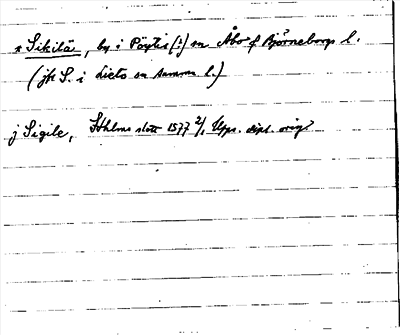 * Sikilä, by i Pöytis (:) sn Åbo o Björneborgs l.
(jfr S. i Lieto sn samma l.)
j Sigile, Sthlms slott 1577 2/1 Ups. dipl. orig.